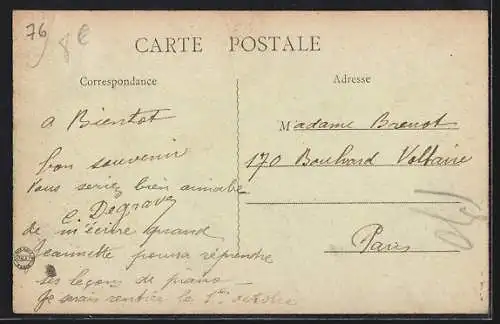 76
8€
CARTE POSTALE
Correspondance
Adresse
a Bientot
bon souvenir
Vous seriez bien aimable
C Degrave
de m'écrire quand
Jeannette pourra réprendre
ses leçons de piano
Je serais rentrée le 1er octobre
Madame Brenot
170 Boulvard Voltaire
Paris